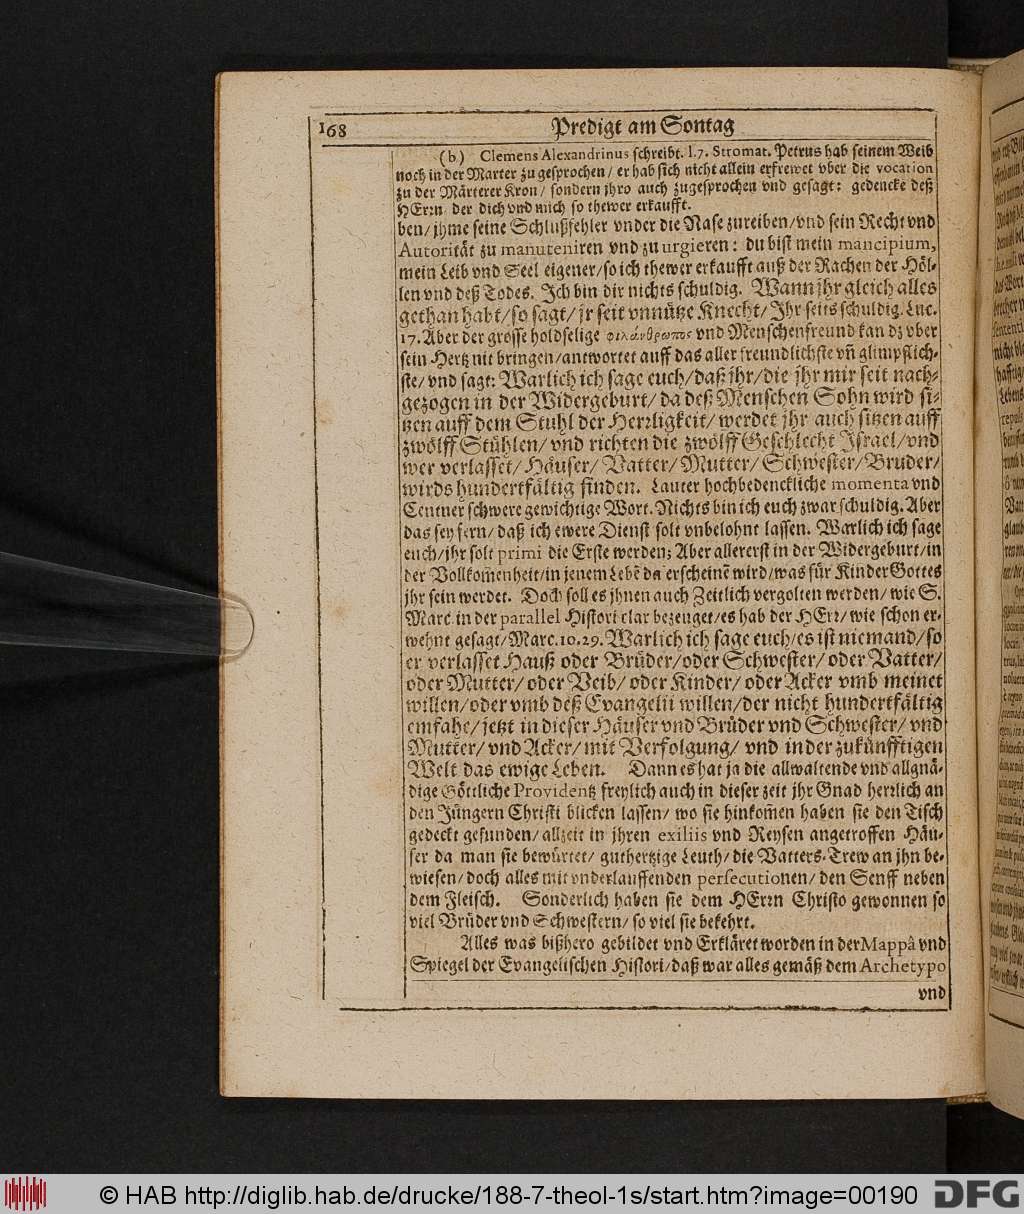 168 Predigt am Sontag
(b.) Clemens Alexandrinus schreibt. l. 7. Stromat. Petrus hab seinem Weib
noch in der Marter zu gesprochen/ er hab sich nicht allein erfrewet vber die vocation
zu der Märterer Kron/ sondern jhro auch zugesprochen vnd gesagt: gedencke deß
HErrn der dich vnd mich so thewer erkaufft.
ben/ jhme seine Schlußfehler vnder die Nase zureiben/ vnd sein Recht vnd
Autorität zu manuteniren vnd zu urgieren: du bist mein mancipium,
mein Leib vnd Seel eigener/ so ich thewer erkaufft auß der Rachen der Höl-
len vnd deß Todes. Ich bin dir nichts schuldig. Wann jhr gleich alles
gethan habt/ so sagt/ jr seit vnnütze Knecht/ Ihr seits schuldig. Luc.
17. Aber der grosse holdselige φιλάνθρωπος vnd Menschenfreund kan dz vber
sein Hertz nit bringen/ antwortet auff das aller freundlichste vñ glimpflich-
ste/ vnd sagt: Warlich ich sage euch/ daß jhr/ die jhr mir seit nach-
gezogen in der Widergeburt/ da deß Menschen Sohn wird si-
tzen auff dem Stuhl der Herrligkeit/ werdet jhr auch sitzen auff
zwölff Stühlen/ vnd richten die zwölff Geschlecht Israel/ vnd
wer verlasset/ Häuser/ Vatter/ Mutter/ Schwester/ Bruder/
wirds hundertfältig finden. Lauter hochbedenckliche momenta vnd
Centner schwere gewichtige Wort. Nichts bin ich euch zwar schuldig. Aber
das sey fern/ daß ich ewere Dienst solt vnbelohnt lassen. Warlich ich sage
euch/ jhr solt primi die Erste werden; Aber allererst in der Widergeburt/ in
der Vollkom̃enheit/ in jenem Lebẽ da erscheinẽ wird/ was für Kinder Gottes
jhr sein werdet. Doch soll es jhnen auch Zeitlich vergolten werden/ wie S.
Marc in der parallel Histori clar bezeuget/ es hab der HErr/ wie schon er-
wehnt gesagt/ Marc. 10. 29. Warlich ich sage euch/ es ist niemand/ so
er verlasset Hauß oder Brüder/ oder Schwester/ oder Vatter/
oder Mutter/ oder Veib/ oder Kinder/ oder Acker vmb meinet
willen/ oder vmb deß Evangelii willen/ der nicht hundertfältig
emfahe/ jetzt in dieser Häuser vnd Brüder vnd Schwester/ vnd
Mutter/ vnd Acker/ mit Verfolgung/ vnd in der zukünfftigen
Welt das ewige Leben. Dann es hat ja die allwaltende vnd allgnä-
dige Göttliche Providentz freylich auch in dieser zeit jhr Gnad herrlich an
den Jüngern Christi blicken lassen/ wo sie hinkom̃en haben sie den Tisch
gedeckt gefunden/ allzeit in jhren exiliis vnd Reysen angetroffen Häu-
ser da man sie bewürtet/ guthertzige Leuth/ die Vatters-Trew an jhn be-
wiesen/ doch alles mit vnderlauffenden persecutionen/ den Senff neben
dem Fleisch. Sonderlich haben sie dem HErrn Christo gewonnen so
viel Brüder vnd Schwestern/ so viel sie bekehrt.
Alles was bißhero gebildet vnd Erkläret worden in der Mappâ vnd
Spiegel der Evangelischen Histori/ daß war alles gemäß dem Archetypo
vnd
© HAB http://diglib.hab.de/drucke/188-7-theol-1s/start.htm?image=00190 DFG